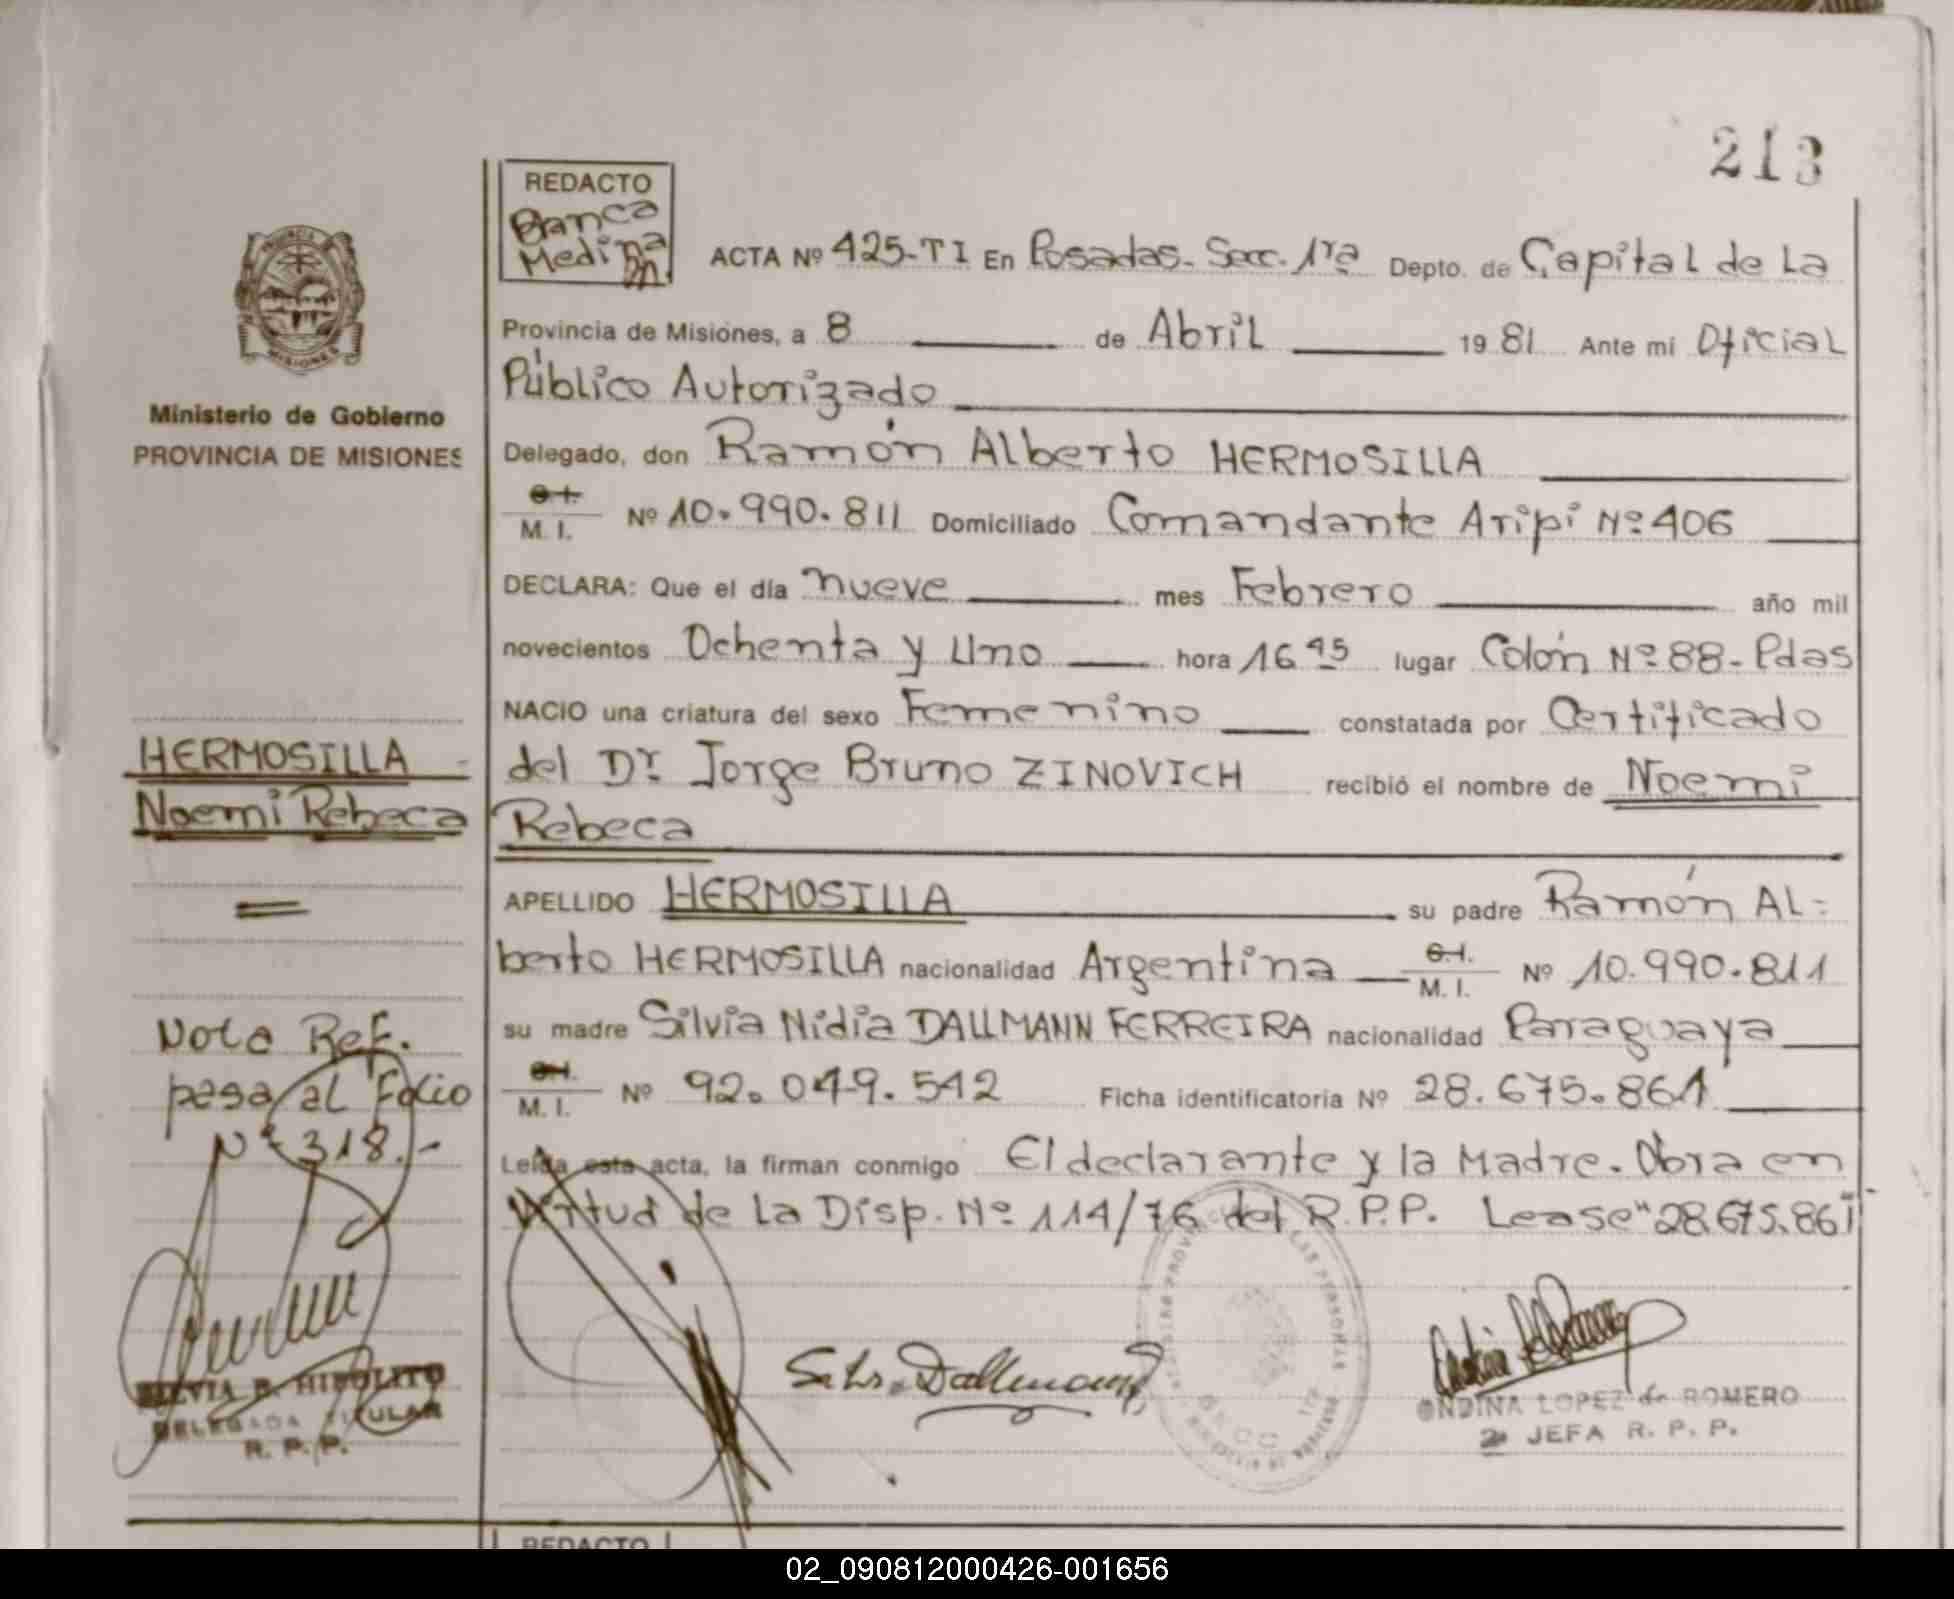 213
REDACTO
Branca
Medina
ACTA Nº 425-TI En Posadas - Secc. 1ra Depto. de Capital de La
Provincia de Misiones, a 8 de Abril 1981 Ante mí Oficial
Público Autorizado
Delegado, don Ramón Alberto HERMOSILLA
C.I.
M. I. Nº 10.990.811 Domiciliado Comandante Aripi Nº 406
DECLARA: Que el día nueve mes Febrero año mil
novecientos Ochenta y Uno hora 16 45 lugar Colón Nº 88 - Pdas
NACIO una criatura del sexo Femenino constatada por Certificado
del Dr. Jorge Bruno ZINOVICH recibió el nombre de Noemi
Rebeca
APELLIDO HERMOSILLA su padre Ramón Al=
berto HERMOSILLA nacionalidad Argentina C.I. M. I. Nº 10.990.811
su madre Silvia Nidia DALLMANN FERREIRA nacionalidad Paraguaya
C.I.
M. I. Nº 92.049.542 Ficha identificatoria Nº 28.675.861
Leída esta acta, la firman conmigo El declarante y la Madre. Obra en
Virtud de La Disp. Nº 114/76 del R.P.P. Lease "28.675.861"
ONDINA LOPEZ de ROMERO
2 JEFA R. P. P.
MISIONES
Ministerio de Gobierno
PROVINCIA DE MISIONES
HERMOSILLA
Noemi Rebeca
Nota Ref.
pasa al Folio
Nº 318.-
SILVIA B. HIPOLITO
DELEGADA TITULAR
R. P. P.
REDACTO
02_090812000426-001656